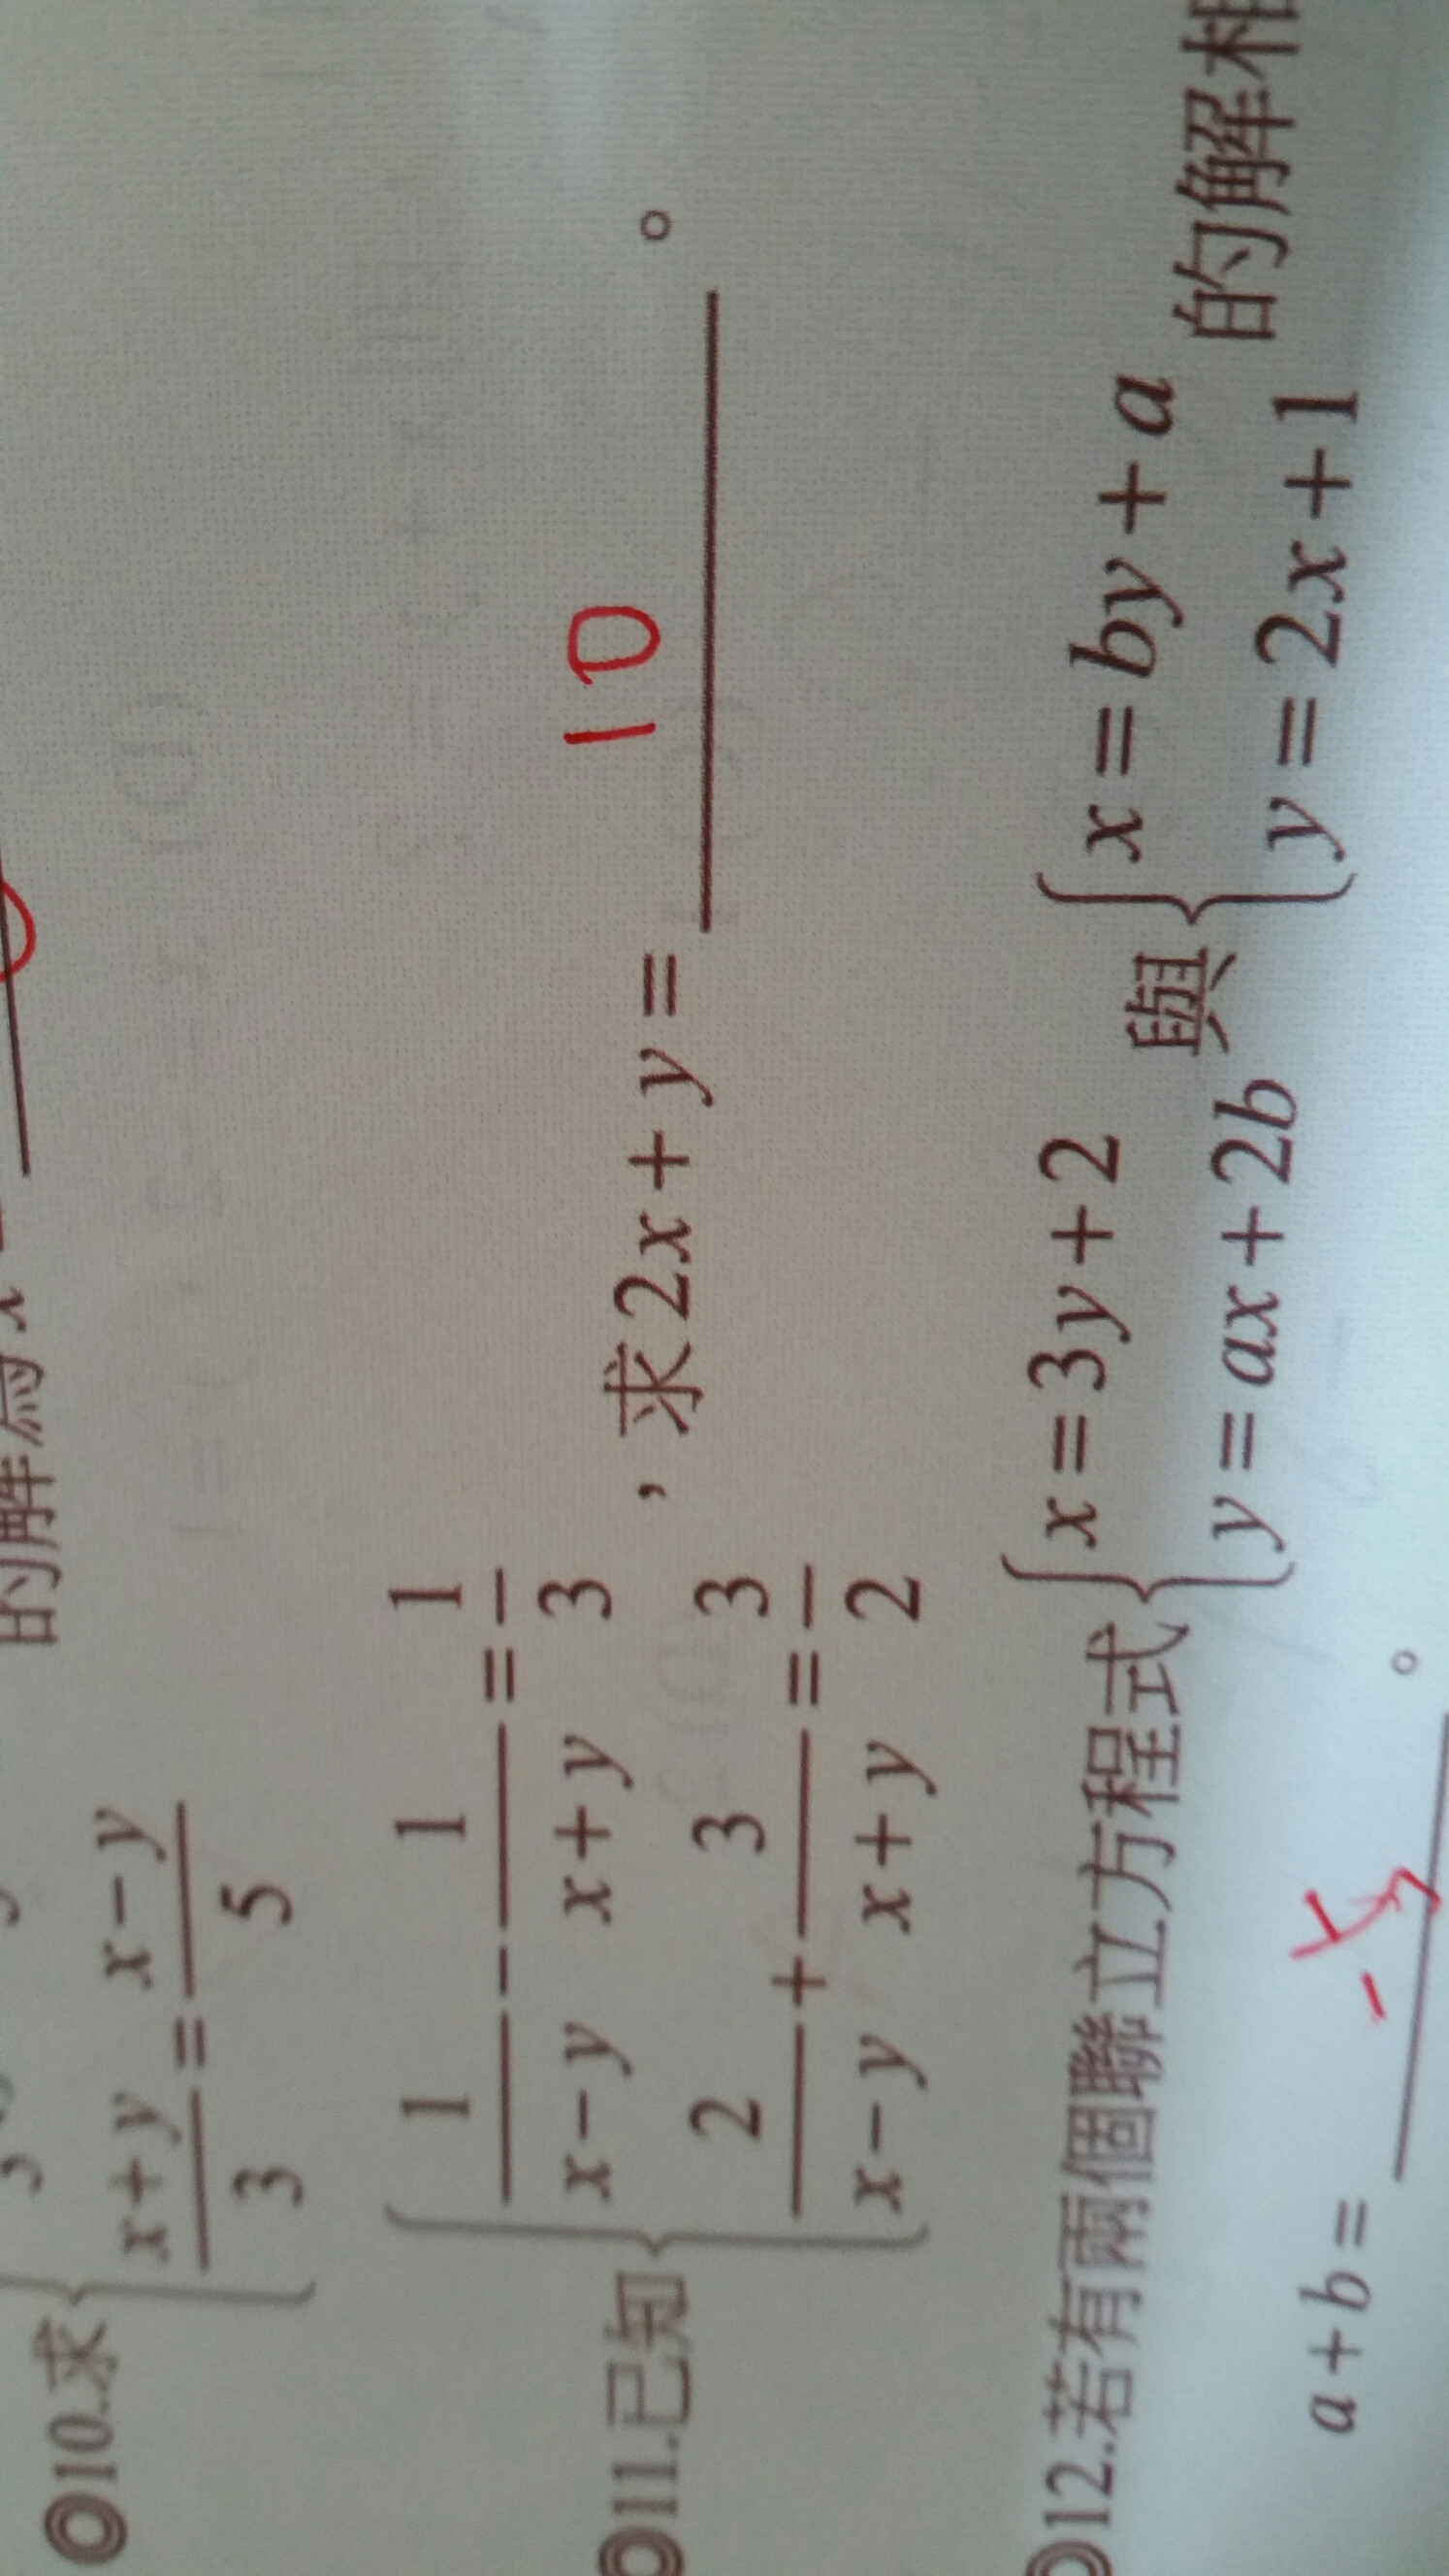 的解為x
◎10.求{(x+y)/3=(x-y)/5
◎11.已知{1/(x-y)-1/(x+y)=1/3
2/(x-y)+3/(x+y)=3/2,求2x+y=10。
◎12.若有兩個聯立方程式{x=3y+2
y=ax+2b與{x=by+a
y=2x+1的解
a+b=-5。